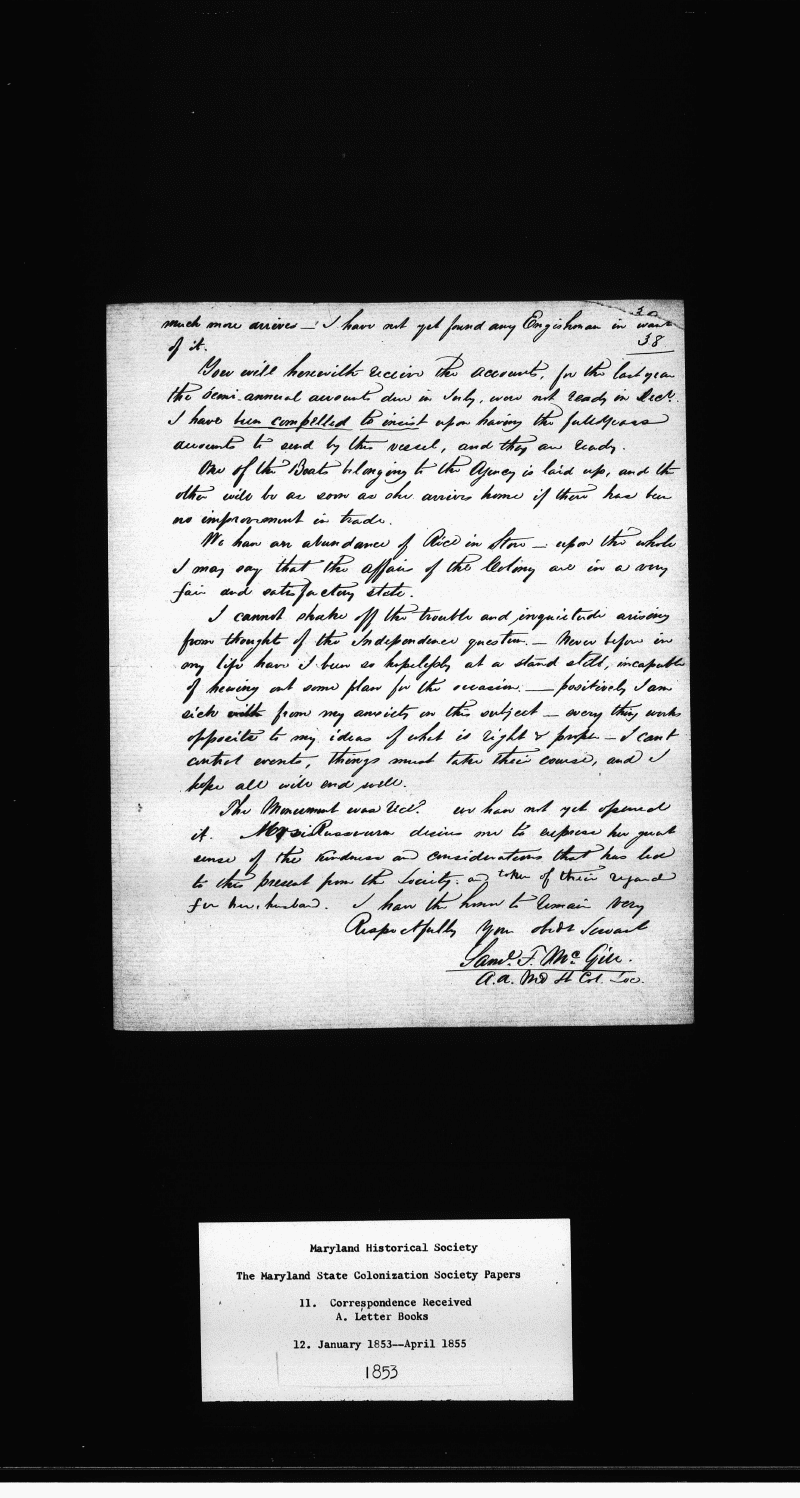 30
much more arrives — I have not yet found any Engishman in want
38
of it.
You will herewith receive the accounts, for the last year
the Semi-annual accounts due in July, were not ready in Decr.
I have been compelled to insist upon having the full years
accounts to send by this vessel, and they are ready.
One of the Boats belonging to the Agency is laid up, and the
other will be as soon as she arrives home if there has been
no improvement in trade.
We have an abundance of Rice in Store — upon the whole
I may say that the affairs of the Colony are in a very
fair and satisfactory state.
I cannot shake off the trouble and inquietude arising
from thought of the Independence question. — Never before in
my life have I been so hopelessly at a stand still, incapable
of hewing out some plan for the occasion. — positively I am
sick with from my anxiety on this subject — every thing works
opposite to my ideas of what is right & proper — I cant
control events, things must take their course, and I
hope all will end well.
The Monument was Recd. we have not yet opened
it. Mrs Russwurm desires me to express her great
sense of the kindness and considerations that has led
to this present from the Society: as token of their regard
for her husband. I have the honor to remain very
Respectfully Your obdt Servant
Saml. F. McGill.
A.a. Md St Col. Soc.
Maryland Historical Society
The Maryland State Colonization Society Papers
11. Correspondence Received
A. Letter Books
12. January 1853--April 1855
1853